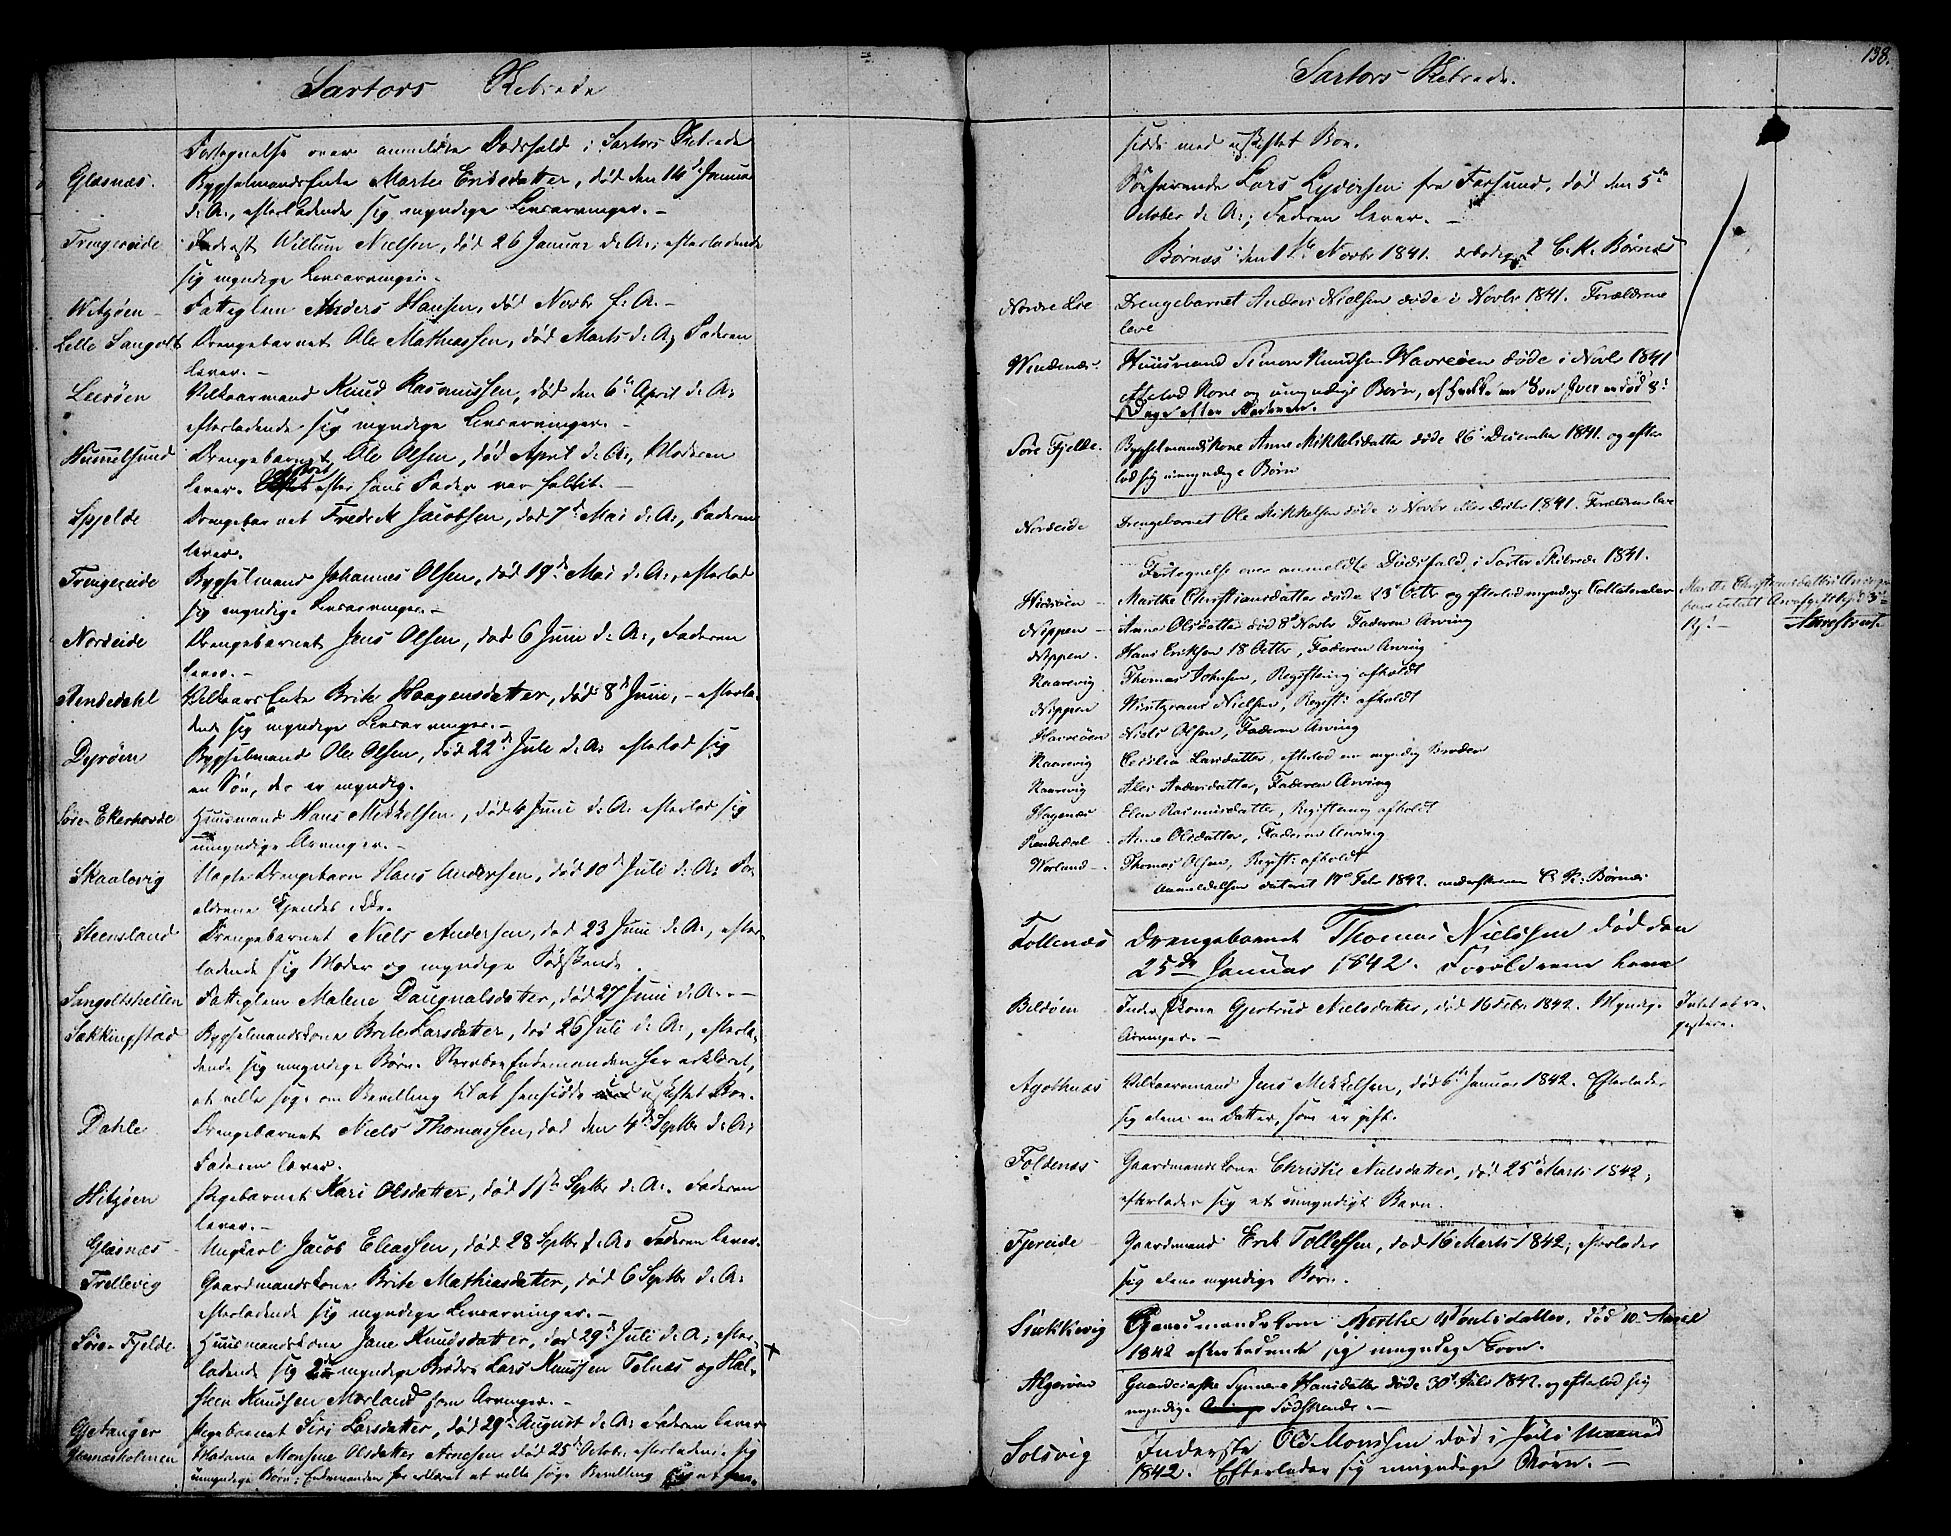 Sartors Skibrede
Fortegnelse over anmeldte Dødsfald i Sartors Skibrede
Glæsnæs. Bygselmands Enke Marte Ericsdatter, død den 14de Januar
d: A:, efterladende sig myndige Livsarvinger. -
Trengereide Inderst Willum Nielsen, død 26 Januar d: A:, efterladende
sig myndige Livsarvinger. -
Witzøen - Fattiglem Anders Hansen, død Novbr f: A: -
Lille Sangolt Drengebarnet Ole Mathiassen, død Marts d: A; Faderen
lever. -
Leerøen Vilkaarmand Knud Rasmussen, død den 6te April d: A:
efterladende sig myndige Livsarvinger. -
Hummelsund Drengebarnet Ole Olsen, død April d: A:, Moderen
lever. efter hans Fader var holdt. -
Spjelde Drengebarnet Fredrik Jacobsen, død 7de Mai d: A:, Faderen
lever.
Trengereide Bygselmand Johannes Olsen, død 19de Mai d: A:, efterlod
sig myndige Livsarvinger. -
Nordeide Drengebarnet Jens Olsen, død 6 Juni d: A:, Faderen
lever. -
Rendedahl Vilkaars Enke Brite Haagensdatter, død 8de Juni, - efterla-
dende sig myndige Livsarvinger. -
Dyrøen Bygselmand Ole Olsen, død 22de Juli d: A: efterlod sig
en Søn, der er myndig.
Søre Ekerhovde Huusmand Hans Mikkelsen, død 4 Juni d: A: efterlod sig
umyndige Arvinger. -
Skaalevig Uægte Drengebarn Hans Andersen, død 10de Juli d: A: For-
ældrene kjendes ikke.
Steensland Drengebarnet Niels Andersen, død 23 Juni d: A:, efter-
ladende sig Moder og myndige Sødskende.
Sangoltshellen Fattiglem Malene Daugnalsdatter, død 27 Juni d: A: -
Sækkingstad Bygselmandskone Brite Larsdatter, død 26 Juli d: A:, efterla-
dende sig umyndige Børn. Enkemanden har erklæret,
at ville søge om Bevilling til at hensidde i uskiftet Boe.
Dahle Drengebarnet Niels Thomassen, død den 4de Septbr d: A:
Faderen lever.
Hitzøen Pigebarnet Kari Olsdatter, død 11te Septbr d: A:. Faderen
lever. -
Glæsnæs - Ungkarl Jacob Eliassen, død 28 Septbr f: A: Faderen lever.
Trellevig Gaardmandskone Brite Mathiasdatter, død 6 Septbr d: A:
efterladende sig myndige Livsarvinger. -
Søre Fjelde Huusmandskone Jane Knudsdatter, død 29de Juli d: A; efter-
ladende sig 2de myndige Brødre Lars Knudsen Telnæs og Hal-
sten Knudsen Morland som Arvinger. -
Gjetanger Pigebarnet Siri Larsdatter, død 29de August d: A: Faderen lever
Glæsnæsholmen Madame Monsine Olsdatter Arnesen død 25de Octbr. efterladende sig
umyndige Børn; Enkemanden har erklæret at ville søge Bevilling at hen-
138.
Sartors Skibrede.
sidde med uskiftet Boe.
Søfarende Lars Lydersen fra Farsund, død den 5te
October d: A:; Faderen lever. -
Børnæs den 1ste Novbr 1841. ærbødigst C. K. Børnæs
Nordre Lie Drengebarnet Anders Nielsen døde i Novbr 1841. Forældrene
leve
Windenæs. Huusmand Simon Knudsen Havreøen døde i Novbr 1841
efterlod Kone og umyndige Børn, af hvilke en Søn Iver er død 8
Dage efter Faderen.
Søre Fjelde. Bygselmandskone Anne Mikkelsdatter døde 26 December 1841. og efter
lod sig umyndige Børn
Nordeide Drengebarnet Ole Mikkelsen døde i Novbr eller Decbr 1841. Forældrene leve
Fortegnelse over anmeldte Dødsfald i Sartor Skibrede 1841.
Hidsøen - Marthe Christiansdatter døde 23 Octbr og efterlod myndige Collateralar
Nippen - Anne Olsdatter død 8de Novbr Faderen Arving
Nippen. Hans Eriksen 18 Octbr, Faderen Arving
Kaarevig Thomas Johnsen, Registering afholdt
Nippen Wintzents Nielsen, Regist: afholdt
Havreøen Niels Olsen, Faderen Arving
Kaarevig Cecilia Larsdatter, efterlod en myndig Broder
Kaarevig Ales Andersdatter, Faderen Arving
Hagenæs Elen Rasmusdatter, Registering afholdt
Rendedal Anne Olsdatter, Faderen Arving
Worland - Thomas Olsen, Regist: afholdt
Anmeldelsen dateret 17de Febr 1842. underskreven C. K. Børnæs
Marthe Christiansdatters Arvinger
have betalt
Follenæs Drengebarnet Thomas Nielssen død den
25de Januar 1842. Forældrene leve
Bildøen Inderstkone Gjertrud Nielsdatter, død 16 Febr 1842. Myndige
Arvinger. -
Intet at re-
gistere.
Agothnæs Vilkaarsmand Jens Mikkelsen, død 6te Januar 1842. Efterlader
sig alene en Datter, som er gift.
Foldenæs Gaardmandskone Christie Nielsdatter, død 25de Marts 1842;
efterlader sig et umyndigt Barn.
Fjereide - Gaardmand Erik Tollefsen, død 16 Marts 1842; efterlader
sig alene myndige Børn.
Snekkevig Gaardmandskone Berthe død 10 April
1842 efterladende sig umyndige Børn.
Algerøen Gaardpige Synneve Hansdatter døde 30de Juli 1842. og efterlod sig
myndige Sødskende. -
Solsvig Inderste Ole Monssen død i Juli Maaned
1842. Efterlader sig umyndige Børn. -